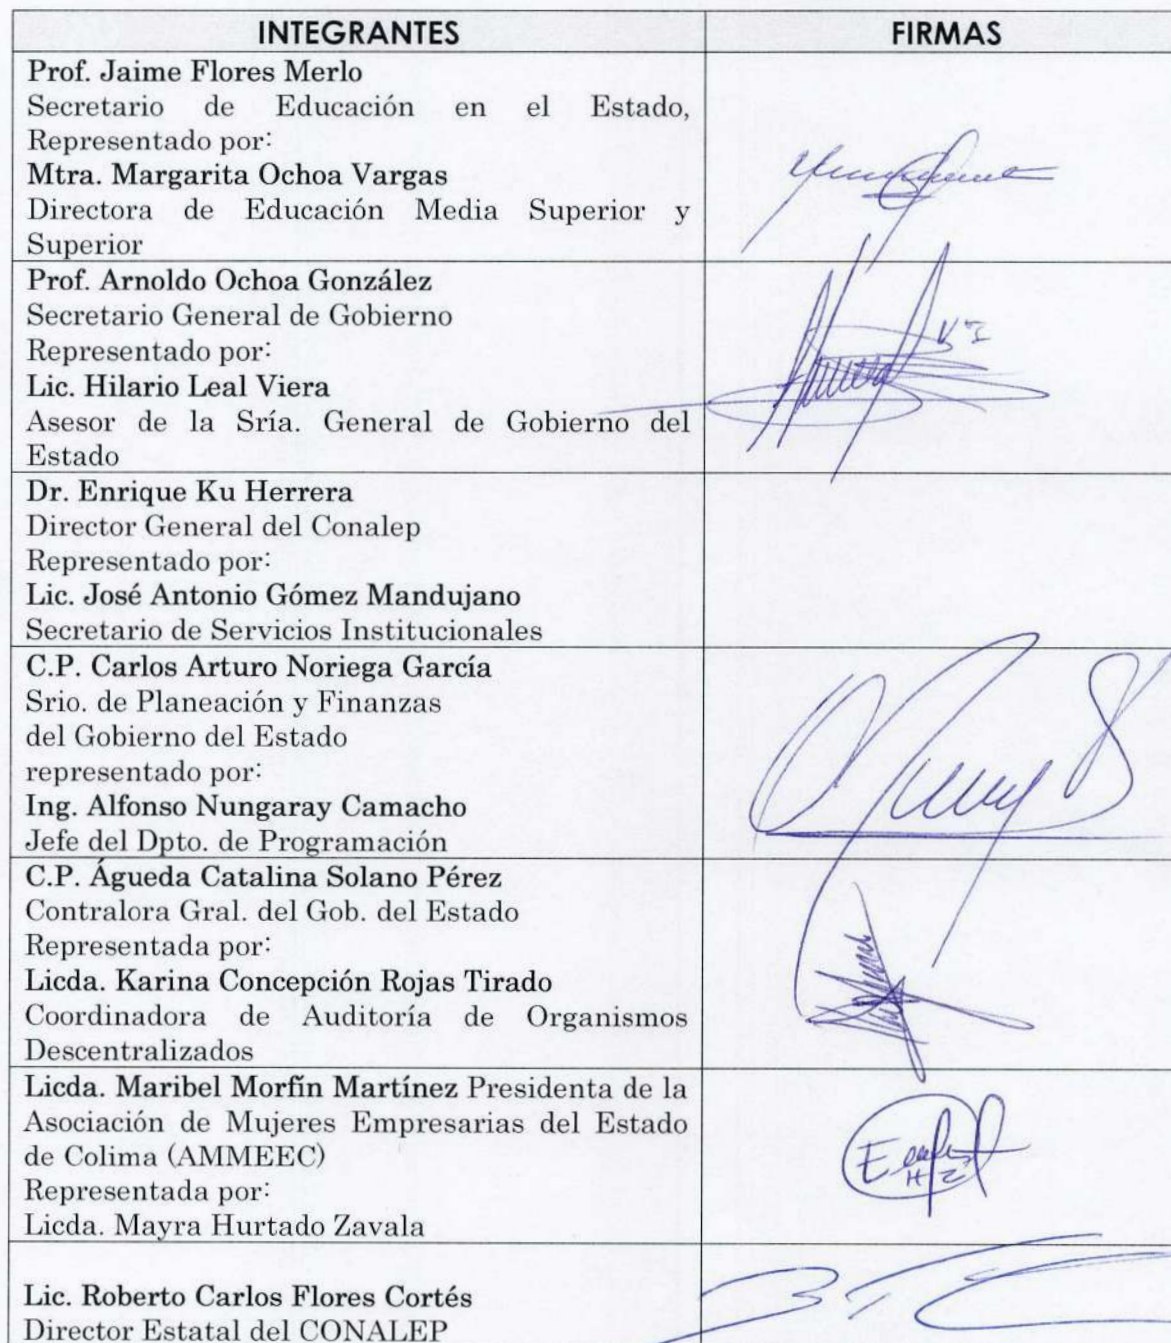 INTEGRANTES FIRMAS
Prof. Jaime Flores Merlo
Secretario de Educación en el Estado,
Representado por:
Mtra. Margarita Ochoa Vargas
Directora de Educación Media Superior y
Superior
Prof. Arnoldo Ochoa González
Secretario General de Gobierno
Representado por:
Lic. Hilario Leal Viera
Asesor de la Sría. General de Gobierno del
Estado
Dr. Enrique Ku Herrera
Director General del Conalep
Representado por:
Lic. José Antonio Gómez Mandujano
Secretario de Servicios Institucionales
C.P. Carlos Arturo Noriega García
Srio. de Planeación y Finanzas
del Gobierno del Estado
representado por:
Ing. Alfonso Nungaray Camacho
Jefe del Dpto. de Programación
C.P. Águeda Catalina Solano Pérez
Contralora Gral. del Gob. del Estado
Representada por:
Licda. Karina Concepción Rojas Tirado
Coordinadora de Auditoría de Organismos
Descentralizados
Licda. Maribel Morfín Martínez Presidenta de la
Asociación de Mujeres Empresarias del Estado
de Colima (AMMEEC)
Representada por:
Licda. Mayra Hurtado Zavala
Lic. Roberto Carlos Flores Cortés
Director Estatal del CONALEP